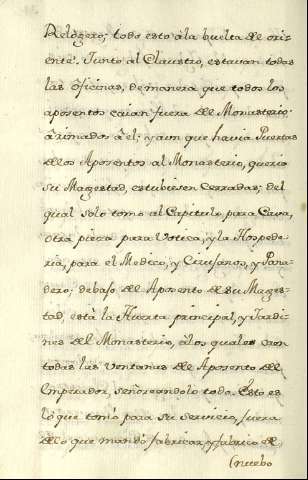 Relogero; todo esto à la buelta de ori-
ente. Junto al Claustro, estavan todas
las oficinas, de manera que todos los
aposentos caian fuera del Monasterio
arrimados à el; y aun que havia Puertas
de los Aposentos al Monasterio, queria
su Magestad, estubiesen Cerradas; del
qual solo tomo al Capitulo, para Cava,
otra pieza para Votica, y la Hospede-
ria, para el Medico, y Cirujanos, y Pana-
dero; debajo del Aposento de Su Mages-
tad, està la Huerta principal, y Jardi-
nes del Monasterio, à los quales son
todas las Ventanas del Aposento del
Emperador, señoreandolo todo. Esto es
lo que tomò para su servicio, fuera
de lo que mandò fabricar, y fabricò de
nuebo